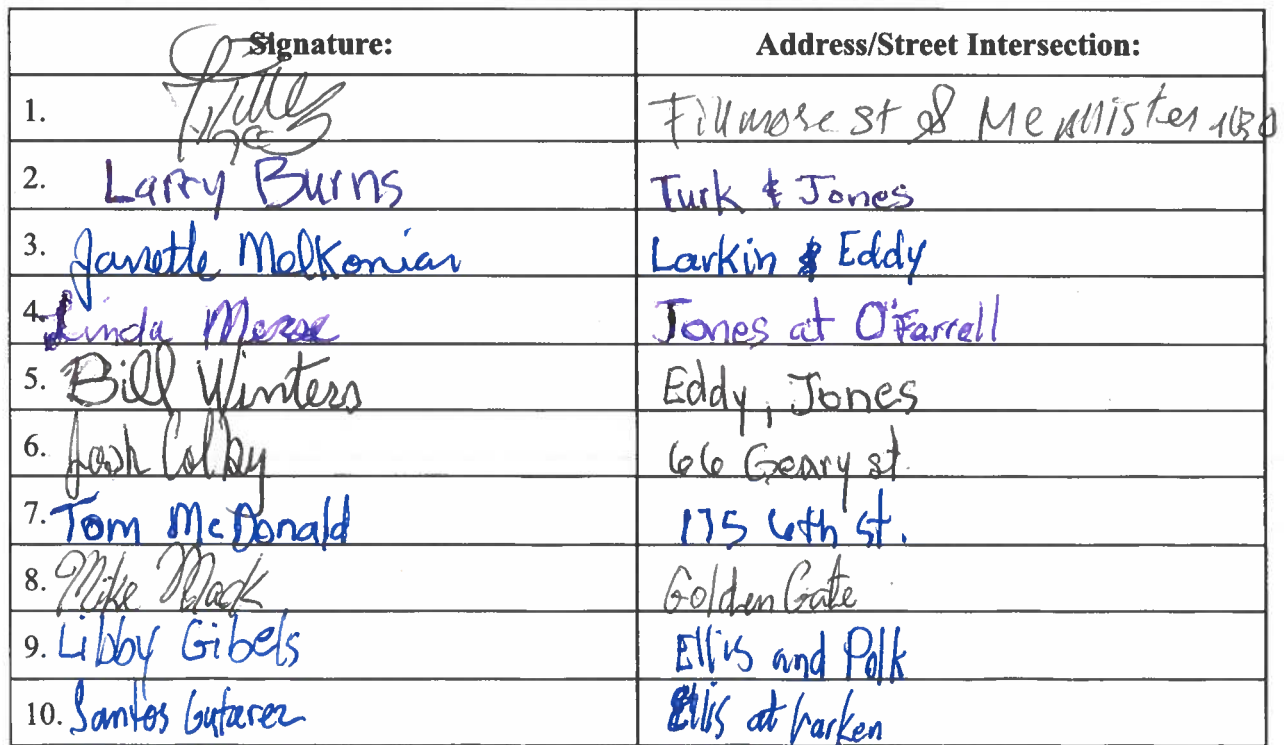 Signature: Address/Street Intersection:
1. Fillmore st & McAllister
2. Larry Burns Turk & Jones
3. Janette Molkonian Larkin & Eddy
4. Linda Larkin & Jones at O'Farrell
5. Bill Winters Eddy, Jones
6. Josh Colby 66 Geary st.
7. Tom McDonald 175 6th st.
8. Mike Mack Golden Gate
9. Libby Gibels Ellis and Polk
10. Santos Gutarez Ellis at Larken